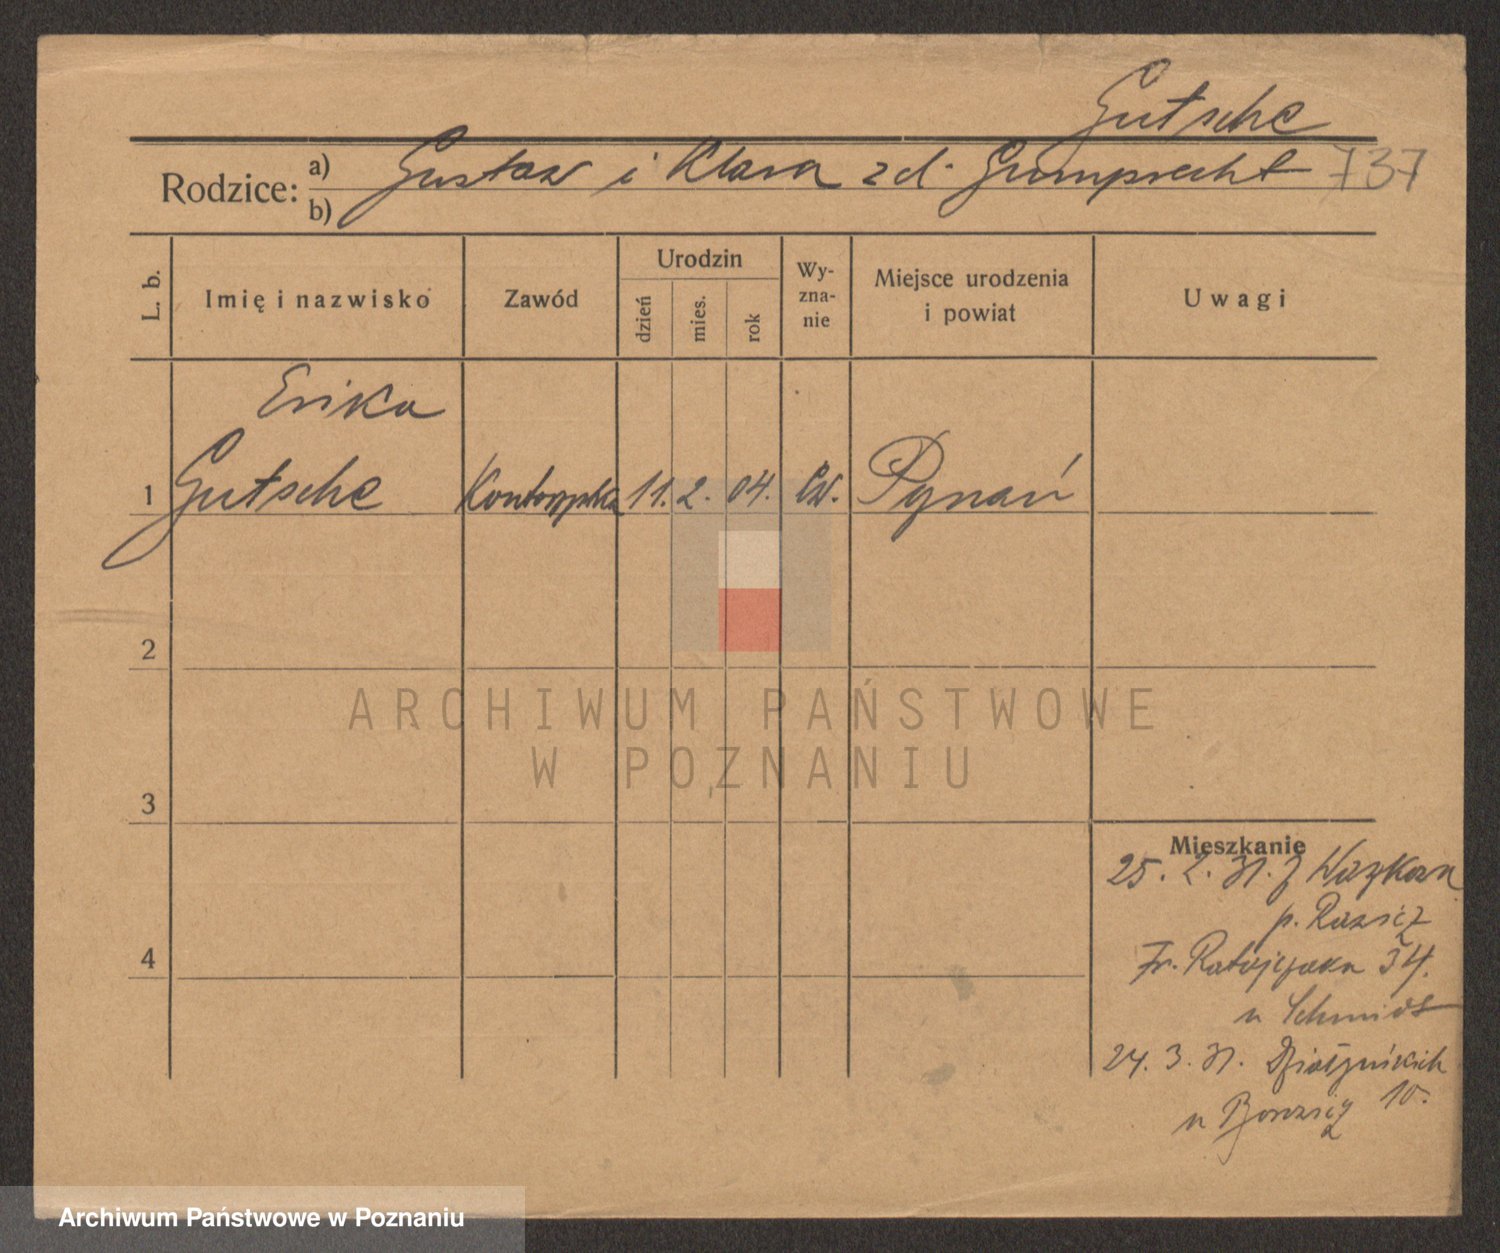 Gutsche
Rodzice: a) Gustaw i Klara zd. Gumprecht 737
b)
L. b.
Imię i nazwisko
Zawód
Urodzin
dzień
mies.
rok
Wy-
zna-
nie
Miejsce urodzenia
i powiat
Uwagi
Erika
1 Gutsche Kontorystka 11. 2. 04. Ew. Poznań
2
3
4
Mieszkanie
25. 2. 31. z
p.
Fr. Ratajczaka 34.
u Schmidt
24. 3. 31. Działyńskich
u 10.
ARCHIWUM PAŃSTWOWE
W POZNANIU
Archiwum Państwowe w Poznaniu